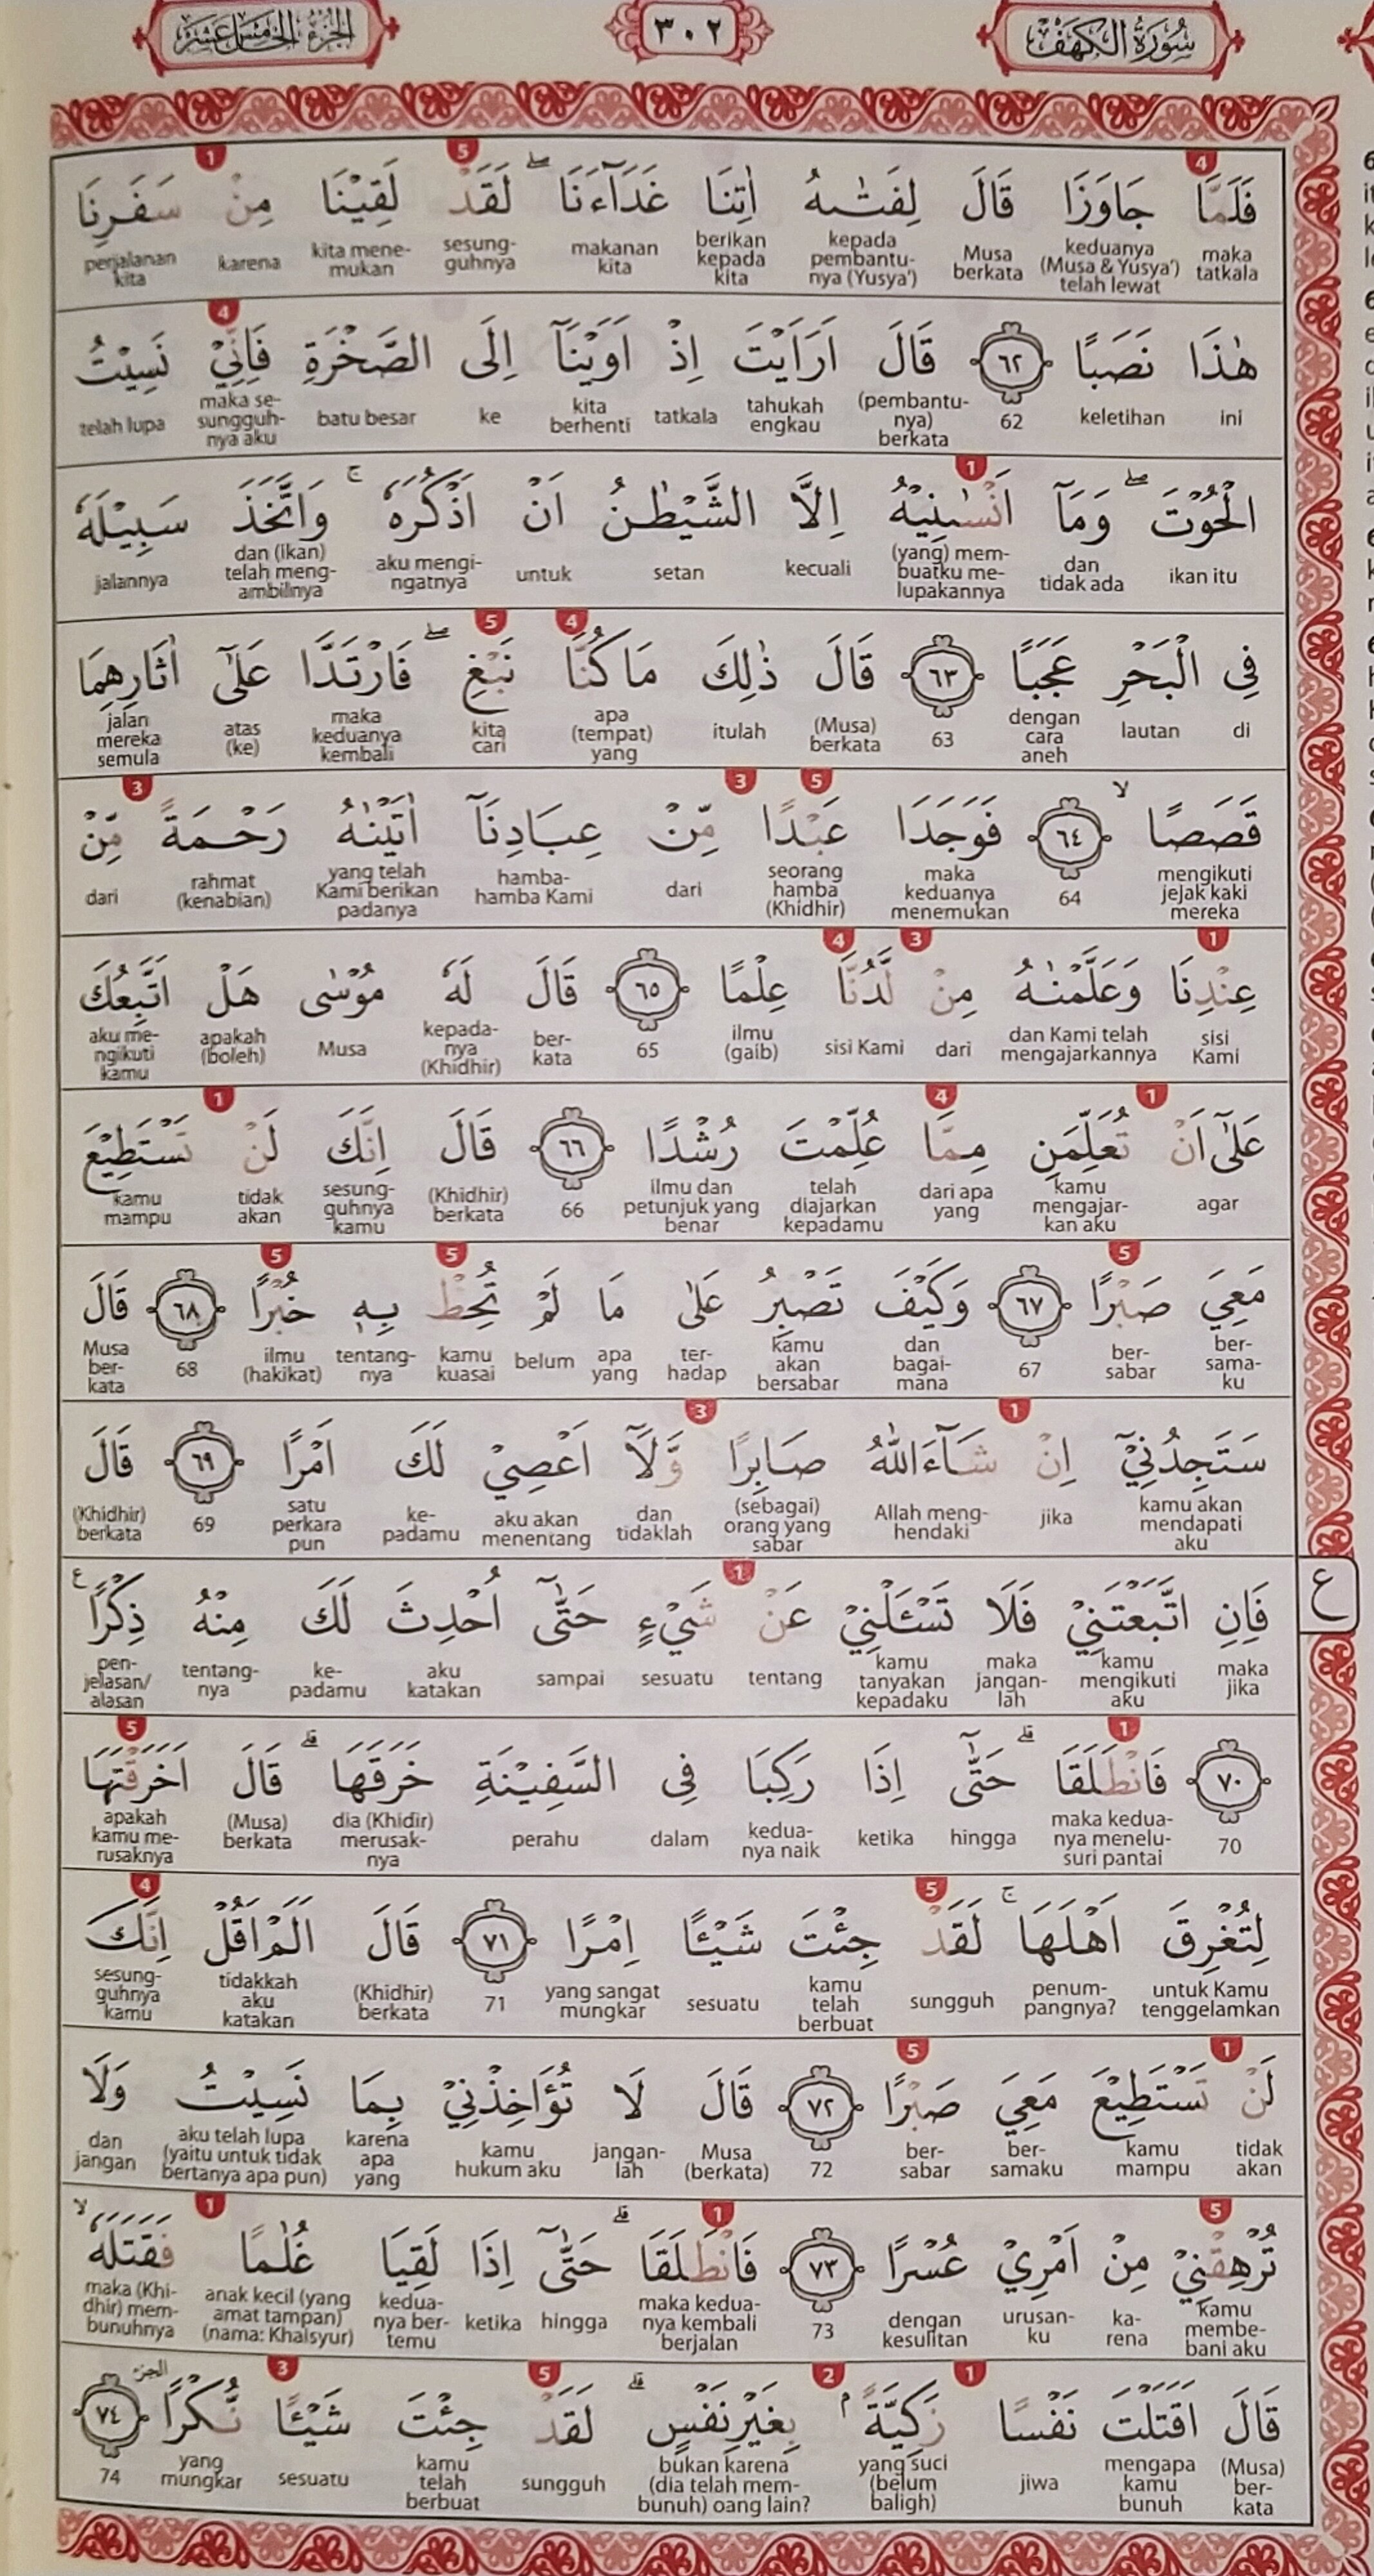 سُورَةُ الْكَهْفِ ٣٠٢ الجُزْءُ الخَامِسَ عَشَرَ
4 5 1
فَلَمَّا جَاوَزَا قَالَ لِفَتٰىهُ اٰتِنَا غَدَاۤءَنَا ۖ لَقَدْ لَقِيْنَا مِنْ سَفَرِنَا
maka tatkala keduanya (Musa & Yusya') telah lewat Musa berkata kepada pembantu-nya (Yusya') berikan kepada kita makanan kita sesung-guhnya kita mene-mukan karena perjalanan kita
4
هٰذَا نَصَبًا ٦٢ قَالَ اَرَاَيْتَ اِذْ اَوَيْنَآ اِلَى الصَّخْرَةِ فَاِنِّيْ نَسِيْتُ
ini keletihan 62 (pembantu-nya) berkata tahukah engkau tatkala kita berhenti ke batu besar maka se-sungguh-nya aku telah lupa
1
الْحُوْتَ ۖ وَمَآ اَنْسٰىنِيْهُ اِلَّا الشَّيْطٰنُ اَنْ اَذْكُرَهٗ ۚ وَاتَّخَذَ سَبِيْلَهٗ
ikan itu dan tidak ada (yang) mem-buatku me-lupakannya kecuali setan untuk aku mengi-ngatnya dan (ikan) telah meng-ambilnya jalannya
4 5
فِى الْبَحْرِ عَجَبًا ٦٣ قَالَ ذٰلِكَ مَا كُنَّا نَبْغِ ۖ فَارْتَدَّا عَلٰٓى اٰثَارِهِمَا
di lautan dengan cara aneh 63 (Musa) berkata itulah apa (tempat) yang kita cari maka keduanya kembali atas (ke) jalan mereka semula
5 3 3
قَصَصًا ۙ ٦٤ فَوَجَدَا عَبْدًا مِّنْ عِبَادِنَآ اٰتَيْنٰهُ رَحْمَةً مِّنْ
mengikuti jejak kaki mereka 64 maka keduanya menemukan seorang hamba (Khidhir) dari hamba-hamba Kami yang telah Kami berikan padanya rahmat (kenabian) dari
1 3 4
عِنْدِنَا وَعَلَّمْنٰهُ مِنْ لَّدُنَّا عِلْمًا ٦٥ قَالَ لَهٗ مُوْسٰى هَلْ اَتَّبِعُكَ
sisi Kami dan Kami telah mengajarkannya dari sisi Kami ilmu (gaib) 65 ber-kata kepada-nya (Khidhir) Musa apakah (boleh) aku me-ngikuti kamu
1 4 1
عَلٰٓى اَنْ تُعَلِّمَنِ مِمَّا عُلِّمْتَ رُشْدًا ٦٦ قَالَ اِنَّكَ لَنْ تَسْتَطِيْعَ
agar kamu mengajar-kan aku dari apa yang telah diajarkan kepadamu ilmu dan petunjuk yang benar 66 (Khidhir) berkata sesung-guhnya kamu tidak akan kamu mampu
5 5 5
مَعِيَ صَبْرًا ٦٧ وَكَيْفَ تَصْبِرُ عَلٰى مَا لَمْ تُحِطْ بِهٖ خُبْرًا ٦٨ قَالَ
ber-sama-ku ber-sabar 67 dan bagai-mana kamu akan bersabar ter-hadap apa yang belum kamu kuasai tentang-nya ilmu (hakikat) 68 Musa ber-kata
1 3
سَتَجِدُنِيْٓ اِنْ شَآءَ اللّٰهُ صَابِرًا وَّلَآ اَعْصِيْ لَكَ اَمْرًا ٦٩ قَالَ
kamu akan mendapati aku jika Allah meng-hendaki (sebagai) orang yang sabar dan tidaklah aku akan menentang ke-padamu satu perkara pun 69 (Khidhir) berkata
1
فَاِنِ اتَّبَعْتَنِيْ فَلَا تَسْـَٔلْنِيْ عَنْ شَيْءٍ حَتّٰٓى اُحْدِثَ لَكَ مِنْهُ ذِكْرًا ࣖ ع
maka jika kamu mengikuti aku maka jangan-lah kamu tanyakan kepadaku tentang sesuatu sampai aku katakan ke-padamu tentang-nya pen-jelasan/ alasan
1 5
٧٠ فَانْطَلَقَا ۗ حَتّٰٓى اِذَا رَكِبَا فِى السَّفِيْنَةِ خَرَقَهَا ۗ قَالَ اَخَرَقْتَهَا
70 maka kedua-nya menelu-suri pantai hingga ketika kedua-nya naik dalam perahu dia (Khidir) merusak-nya (Musa) berkata apakah kamu me-rusaknya
5 4
لِتُغْرِقَ اَهْلَهَا ۚ لَقَدْ جِئْتَ شَيْـًٔا اِمْرًا ٧١ قَالَ اَلَمْ اَقُلْ اِنَّكَ
untuk Kamu tenggelamkan penum-pangnya? sungguh kamu telah berbuat sesuatu yang sangat mungkar 71 (Khidhir) berkata tidakkah aku katakan sesung-guhnya kamu
1 5
لَنْ تَسْتَطِيْعَ مَعِيَ صَبْرًا ٧٢ قَالَ لَا تُؤَاخِذْنِيْ بِمَا نَسِيْتُ وَلَا
tidak akan kamu mampu ber-samaku ber-sabar 72 Musa (berkata) jangan-lah kamu hukum aku karena apa yang aku telah lupa (yaitu untuk tidak bertanya apa pun) dan jangan
5 1 1
تُرْهِقْنِيْ مِنْ اَمْرِيْ عُسْرًا ٧٣ فَانْطَلَقَا ۗ حَتّٰٓى اِذَا لَقِيَا غُلٰمًا فَقَتَلَهٗ ۙ
kamu membe-bani aku ka-rena urusan-ku dengan kesulitan 73 maka kedua-nya kembali berjalan hingga ketika kedua-nya ber-temu anak kecil (yang amat tampan) (nama: Khaisyur) maka (Khi-dhir) mem-bunuhnya
1 2 5 3
قَالَ اَقَتَلْتَ نَفْسًا زَكِيَّةً ۢ بِغَيْرِ نَفْسٍ ۗ لَقَدْ جِئْتَ شَيْـًٔا نُّكْرًا الجزء ٧٤
(Musa) ber-kata mengapa kamu bunuh jiwa yang suci (belum baligh) bukan karena (dia telah mem-bunuh) oang lain? sungguh kamu telah berbuat sesuatu yang mungkar 74